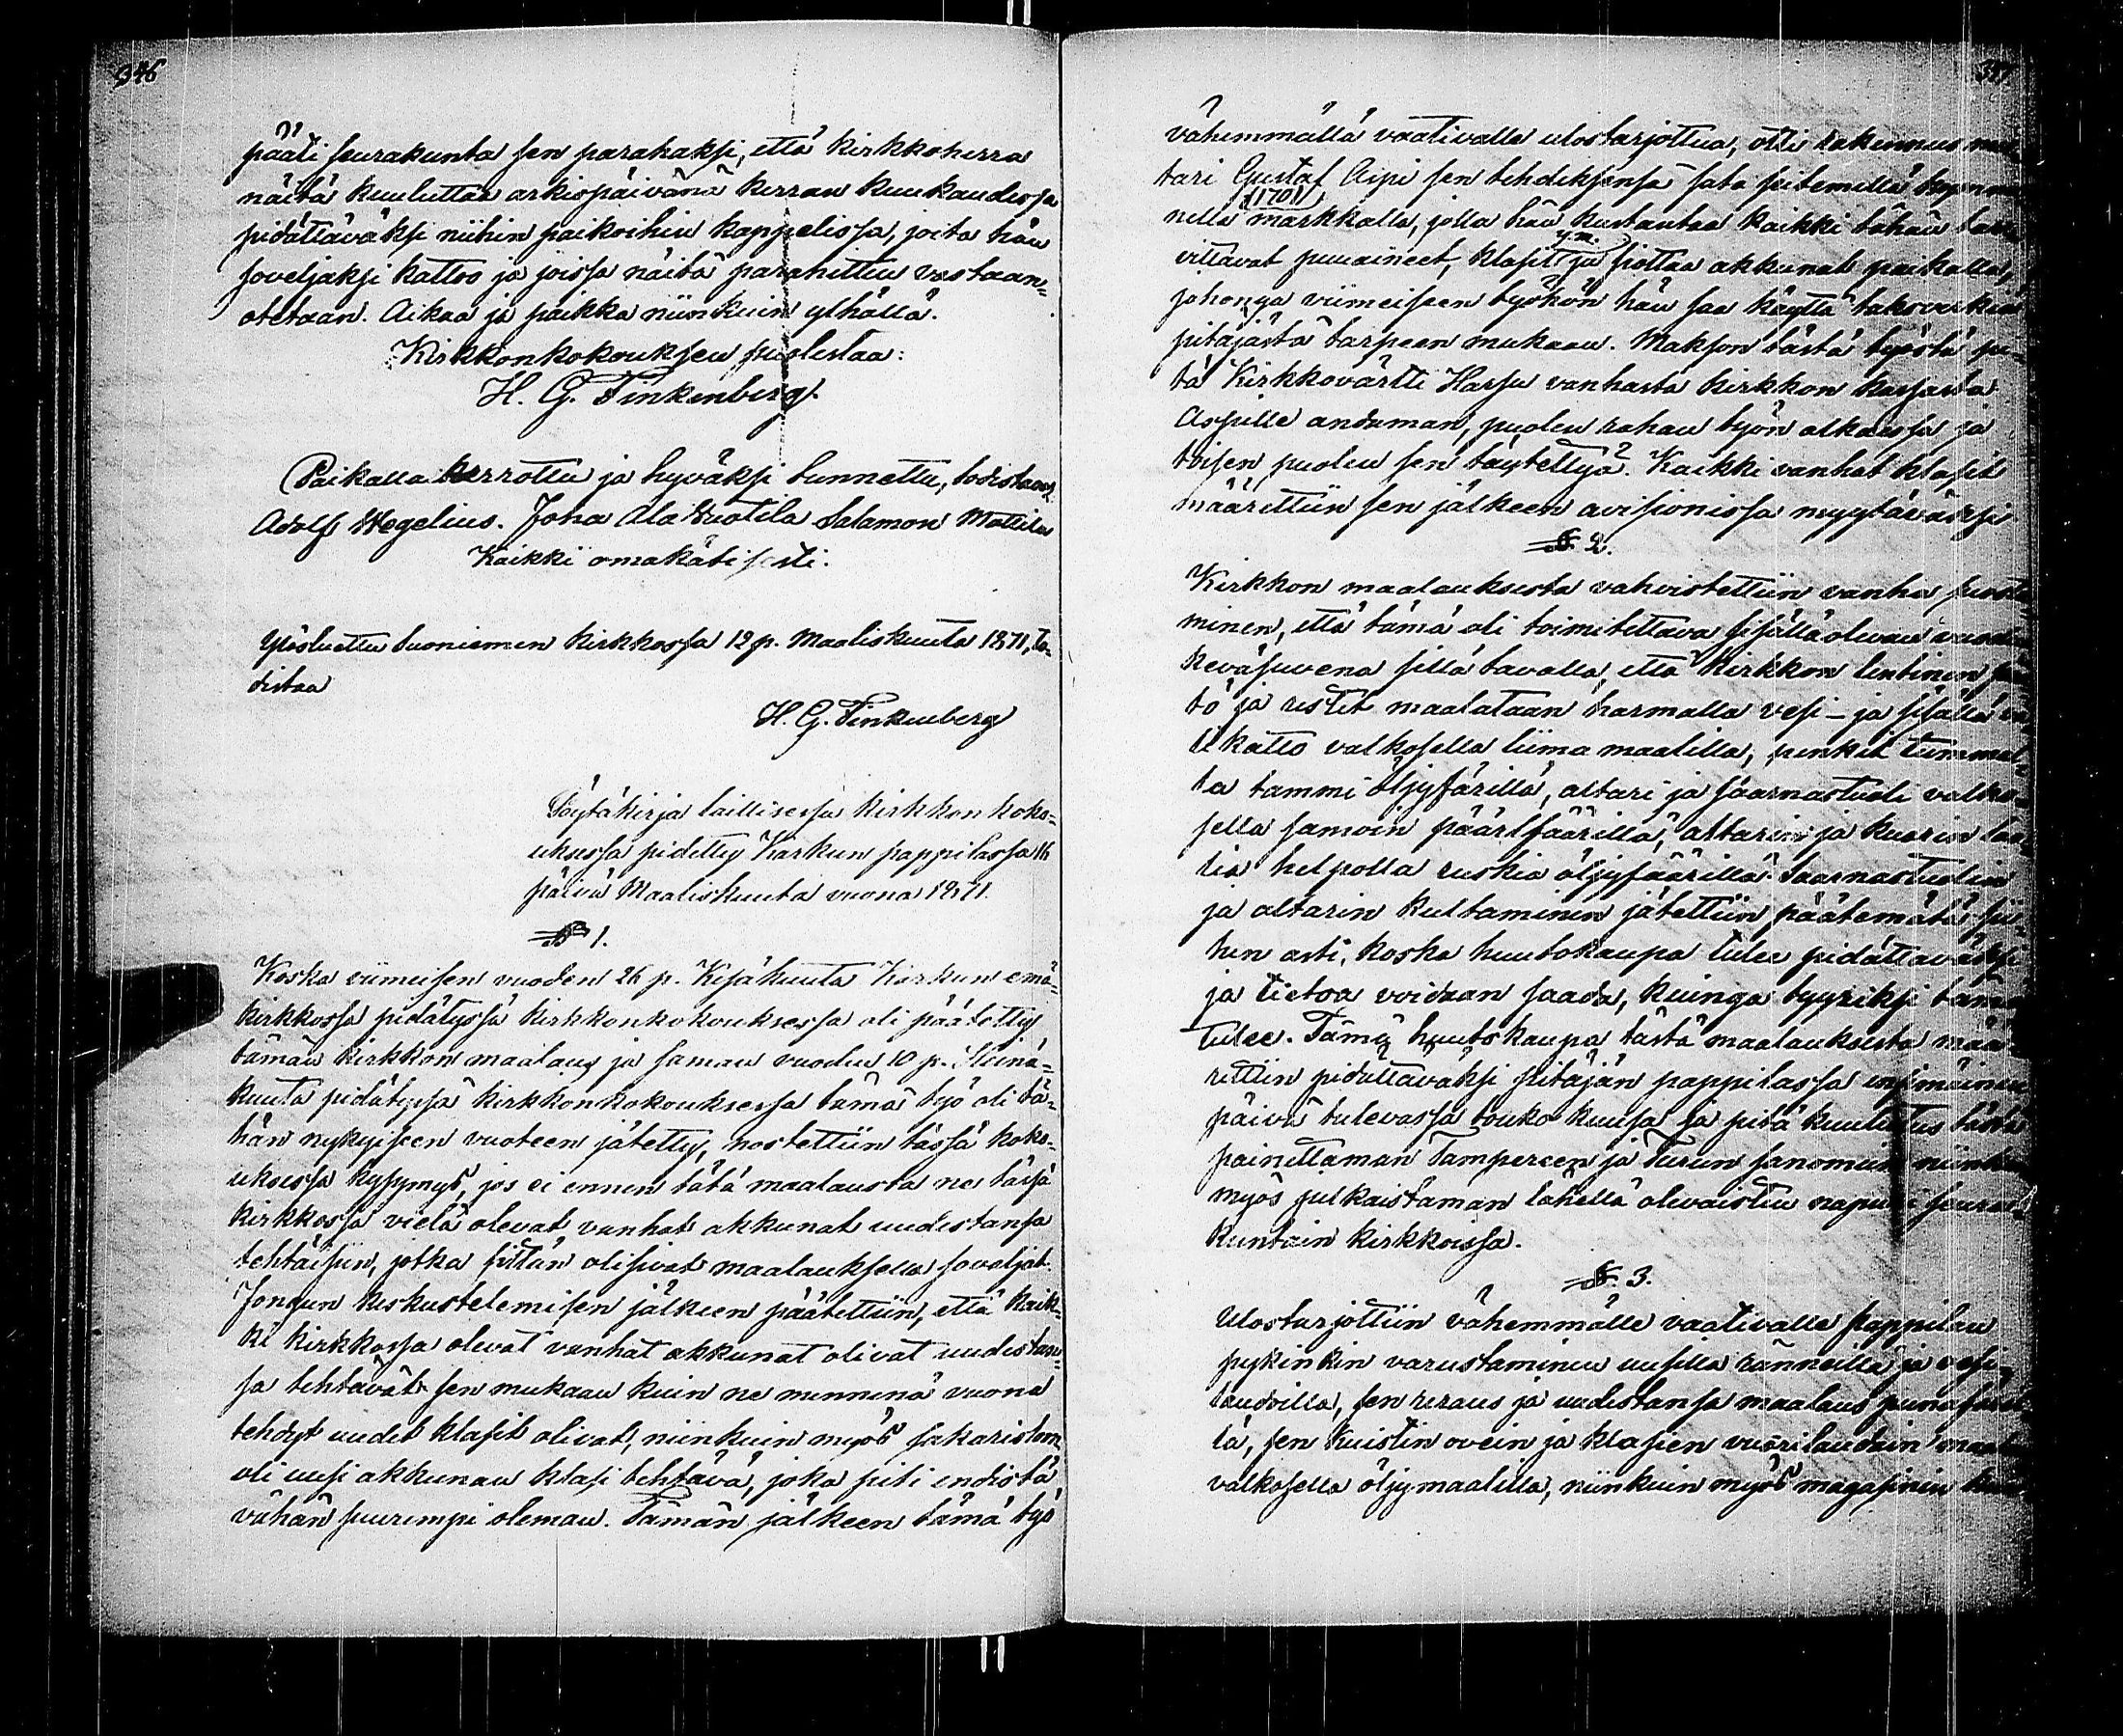 346
pääti seurakunta sen parahaksi, että kirkkoherra
näitä kuuluttaa arkiopäivänä kerran kuukaudessa
pidättäväksi niihin paikoihin kappelissa, joita hän
soveljaksi kattoo ja joissa näitä parahitten vastaan-
otetaan. Aikaa ja paikka niinkuin ylhällä.
Kirkkonkokouksen puolestaa:
H. G. Finkenberg.
Paikalla kerrottu ja hyväksi tunnettu, todistavat
Adolf Hegelius. Joha Ala Vuotila Salamon Mattila
Kaikki omakätisesti.
Ylösluettu Suoniemen kirkkossa 12 p. Maaliskuuta 1871, to-
distaa
H. G. Finkenberg
Pöytäkirja laillisessa kirkkon koko-
uksessa pidetty Karkun pappilassa 16
päivä Maaliskuuta vuona 1871.
§ 1.
Koska viimeisen vuoden 26 p. Kesäkuuta Karkun emä-
kirkkossa pidätyssä kirkkonkokouksessa oli päätetty
tämän kirkkon maalaus ja saman vuoden 10 p. Heinä-
kuuta pidätyssä kirkkonkokouksessa tämä työ oli tä-
hän nykyiseen vuoteen jätetty, nostettiin tässä koko-
uksessa kysymys, jos ei ennen tätä maalausta ne tässä
kirkkossa vielä olevat vanhat akkunat uudestansa
tehtäisiin, jotka sittän olisivat maalauksella soveljat.
Jongun keskustelemisen jälkeen päätettiin, että kaik-
ki kirkkossa olevat vanhat akkunat olivat uudestan-
sa tehtävät sen mukaan kuin ne mennenä vuona
tehdyt uudet klasit olivat, niinkuin myös sakaristom
oli uusi akkunan klasi tehtävä, joka piti endistä
vähän suurempi oleman. Tämän jälkeen tämä työ
vähemmällä vaativalle ulostarjottua, otti rakennus mes-
tari Gustaf Aspi sen tehdäksensä sata seitemällä kymme-
(170)
nellä markkalla, jolla hän kustantaa kaikki tähän tar-
y.m.
vittavat puuaineet, klasit ja siottaa akkunat paikalla,
johonga viimeiseen työhön hän saa käyttä taksverkiä
pitäjästä tarpeen mukaan. Makson tästä työstä pi-
tä Kirkkovärtti Harsu vanhasta kirkkon kassasta
Aspille andaman, puolen rahan työn alkaissa ja
toisen puolen sen täytettyä. Kaikki vanhat klasit
määrättiin sen jälkeen avisionissa myytäväksi
§ 2.
Kirkkon maalauksesta vahvistettiin vanha suostu-
minen, että tämä oli toimitettava sisällä olevan vuoden
keväsuvena sillä tavalla, että kirkkon lautinen
tö ja ristit maalataan harmalla vesi- ja sisällä va-
likatto valkosella liima maalilla, penkit tummal-
ta tammi öljyfärillä, altari ja saarnastuoli valko-
sella samoin päärlfäärillä, altarin ja kuorin
tia helpolla ruskia öljyfäärillä. Saarnastuolin
ja altarin kultaminen jätettiin päätämätä sii-
hen asti, koska huutokaupa tulee pidättäväksi
ja tietoa voidaan saada, kuinga tyyriksi tämä
tulee. Tämä huutokaupa tästä maalauksesta mää-
rättiin pidättäväksi pitäjän pappilassa ensimäinen
päivä tulevassa touko kuussa ja pitä kuulutus tästä
painettaman Tampereen ja Turun sanomiin niinkuin
myös julkaistaman lähellä olevaisten napuri seura-
kuntain kirkkoissa.
§ 3.
Ulostarjottiin vähemmälle vaativalle pappilan
pykinkin varustaminen uusilla rännoilla ja vesi-
laudoilla, sen reraus ja uudestansa maalaus punasäril-
lä, sen kuistin ovein ja klasien vuorilaudain maalaus
valkosella öljymaalilla, niinkuin myös magasinin